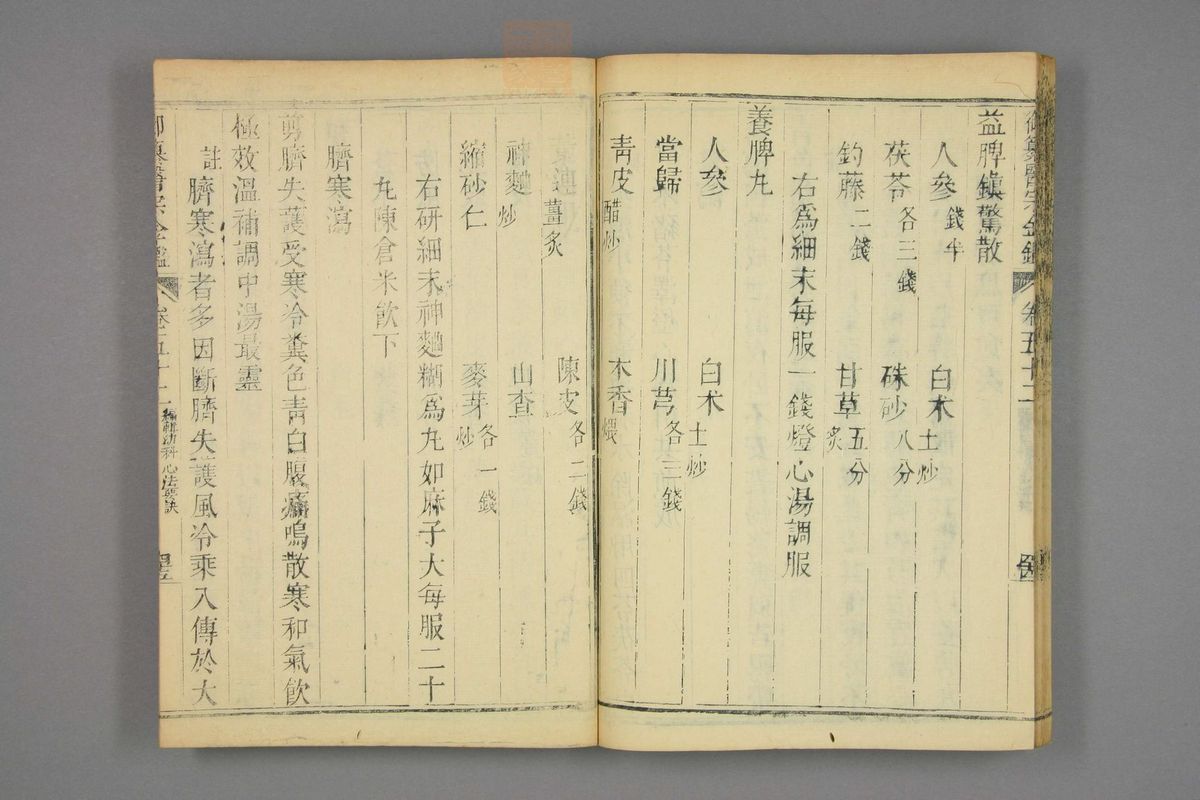 御纂醫宗金鑑 卷五十二
益脾鎮驚散
人參 錢半 白朮 土炒
茯苓 各三錢 硃砂 八分
鈎藤 二錢 甘草 五分 炙
右爲細末每服一錢燈心湯調服
養脾丸
人參 白朮 土炒
當歸 川芎 各三錢
青皮 醋炒 木香 煨
黃連 薑炙 陳皮 各二錢
神麯 炒 山查
縮砂仁 麥芽 炒 各一錢
右研細末神麯糊爲丸如麻子大每服二十
丸陳倉米飲下
臍寒瀉
剪臍失護受寒冷糞色青白腹痛鳴散寒和氣飲
極效溫補調中湯最靈
註 臍寒瀉者多因斷臍失護風冷乘入傳於大
御纂醫宗金鑑 卷五十二 編輯幼科心法要訣